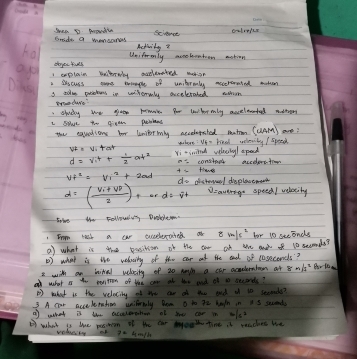 Science
Grade 9
Activity 2
Uniformly acceleration motion
objectives
1 explain uniformly accelerated motion
2 Discuss some example of uniformly accelerated motion
3 solve problems in uniformly accelerated motion
Procedure
• study the given formula for uniformly accelerated motion
• solve the given problems
the equations for uniformly accelerated motion (UAM) are:
where: Vf = final velocity / speed
Vf = Vi + at
Vi = initial velocity / speed
d = Vit + 1/2 at²
a = constant acceleration
t = time
Vf² = Vi² + 2ad
d = distance / displacement
d = (Vi + Vf / 2) t or d = v̄t
v̄ = average speed / velocity
Solve the Following Problem.
1 From rest a car accelerated at 8 m/s² for 10 seconds
a) what is the position of the car at the end of 10 seconds?
b) what is the velocity of the car at the end of 10 seconds?
2 with an initial velocity of 20 km/h a car acceleration at 8 m/s² for 10
a) what is the position of the car at the end of 10 seconds?
b) what is the velocity of the car at the end of 10 seconds?
3 A car acceleration uniformly from 0 to 72 km/h in
a) what is the acceleration of the car in m/s²
b) what is the position of the car time it reaches the
velocity of